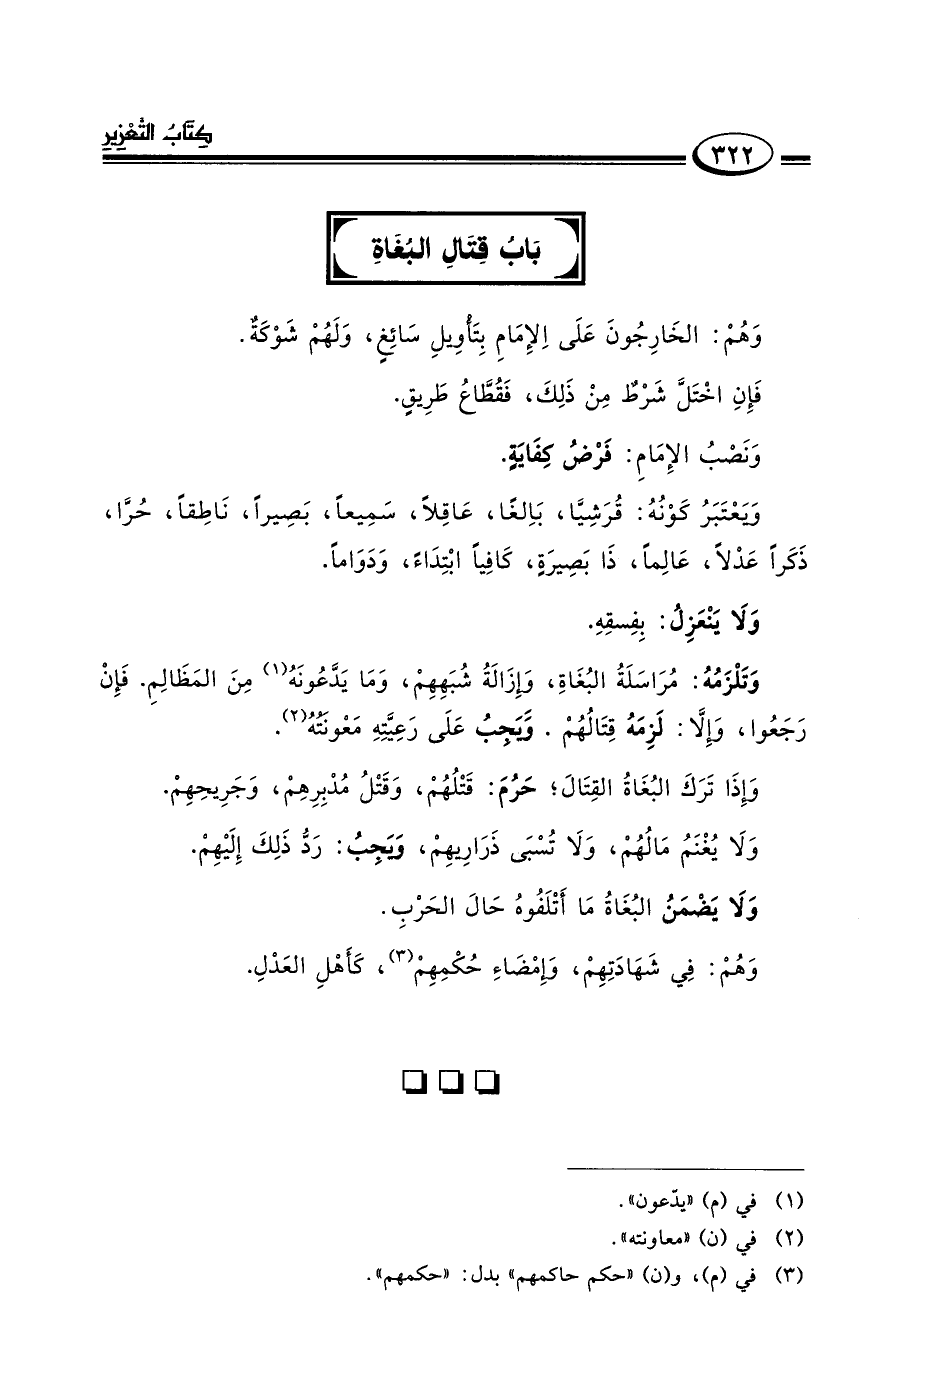 كِتَابُ التَّعْزِيرِ
٣٢٢
بَابُ قِتَالِ البُغَاةِ
وَهُمْ: الخَارِجُونَ عَلَى الإِمَامِ بِتَأْوِيلٍ سَائِغٍ، وَلَهُمْ شَوْكَةٌ.
فَإِنِ اخْتَلَّ شَرْطٌ مِنْ ذَلِكَ، فَقُطَّاعُ طَرِيقٍ.
وَنَصْبُ الإِمَامِ: فَرْضُ كِفَايَةٍ.
وَيَعْتَبَرُ كَوْنُهُ: قُرَشِيًّا، بَالِغًا، عَاقِلاً، سَمِيعاً، بَصِيراً، نَاطِقاً، حُرًّا،
ذَكَراً عَدْلاً، عَالِماً، ذَا بَصِيرَةٍ، كَافِياً ابْتِدَاءً، وَدَوَاماً.
وَلَا يَنْعَزِلُ: بِفِسقِهِ.
وَتَلْزَمُهُ: مُرَاسَلَةُ البُغَاةِ، وَإِزَالَةُ شُبَهِهِمْ، وَمَا يَدَّعُونَهُ(١) مِنَ المَظَالِمِ. فَإِنْ
رَجَعُوا، وَإِلَّا: لَزِمَهُ قِتَالُهُمْ . وَيَجِبُ عَلَى رَعِيَّتِهِ مَعْونَتُهُ(٢).
وَإِذَا تَرَكَ البُغَاةُ القِتَالَ؛ حَرُمَ: قَتْلُهُمْ، وَقَتْلُ مُدْبِرِهِمْ، وَجَرِيحِهِمْ.
وَلَا يُغْنَمُ مَالُهُمْ، وَلَا تُسْبَى ذَرَارِيهِمْ، وَيَجِبُ: رَدُّ ذَلِكَ إِلَيْهِمْ.
وَلَا يَضْمَنُ البُغَاةُ مَا أَتْلَفُوهُ حَالَ الحَرْبِ.
وَهُمْ: فِي شَهَادَتِهِمْ، وَإِمْضَاءِ حُكْمِهِمْ(٣)، كَأَهْلِ العَدْلِ.
(١) في (م) «يدّعون».
(٢) في (ن) «معاونته».
(٣) في (م)، و(ن) «حكم حاكمهم» بدل: «حكمهم».